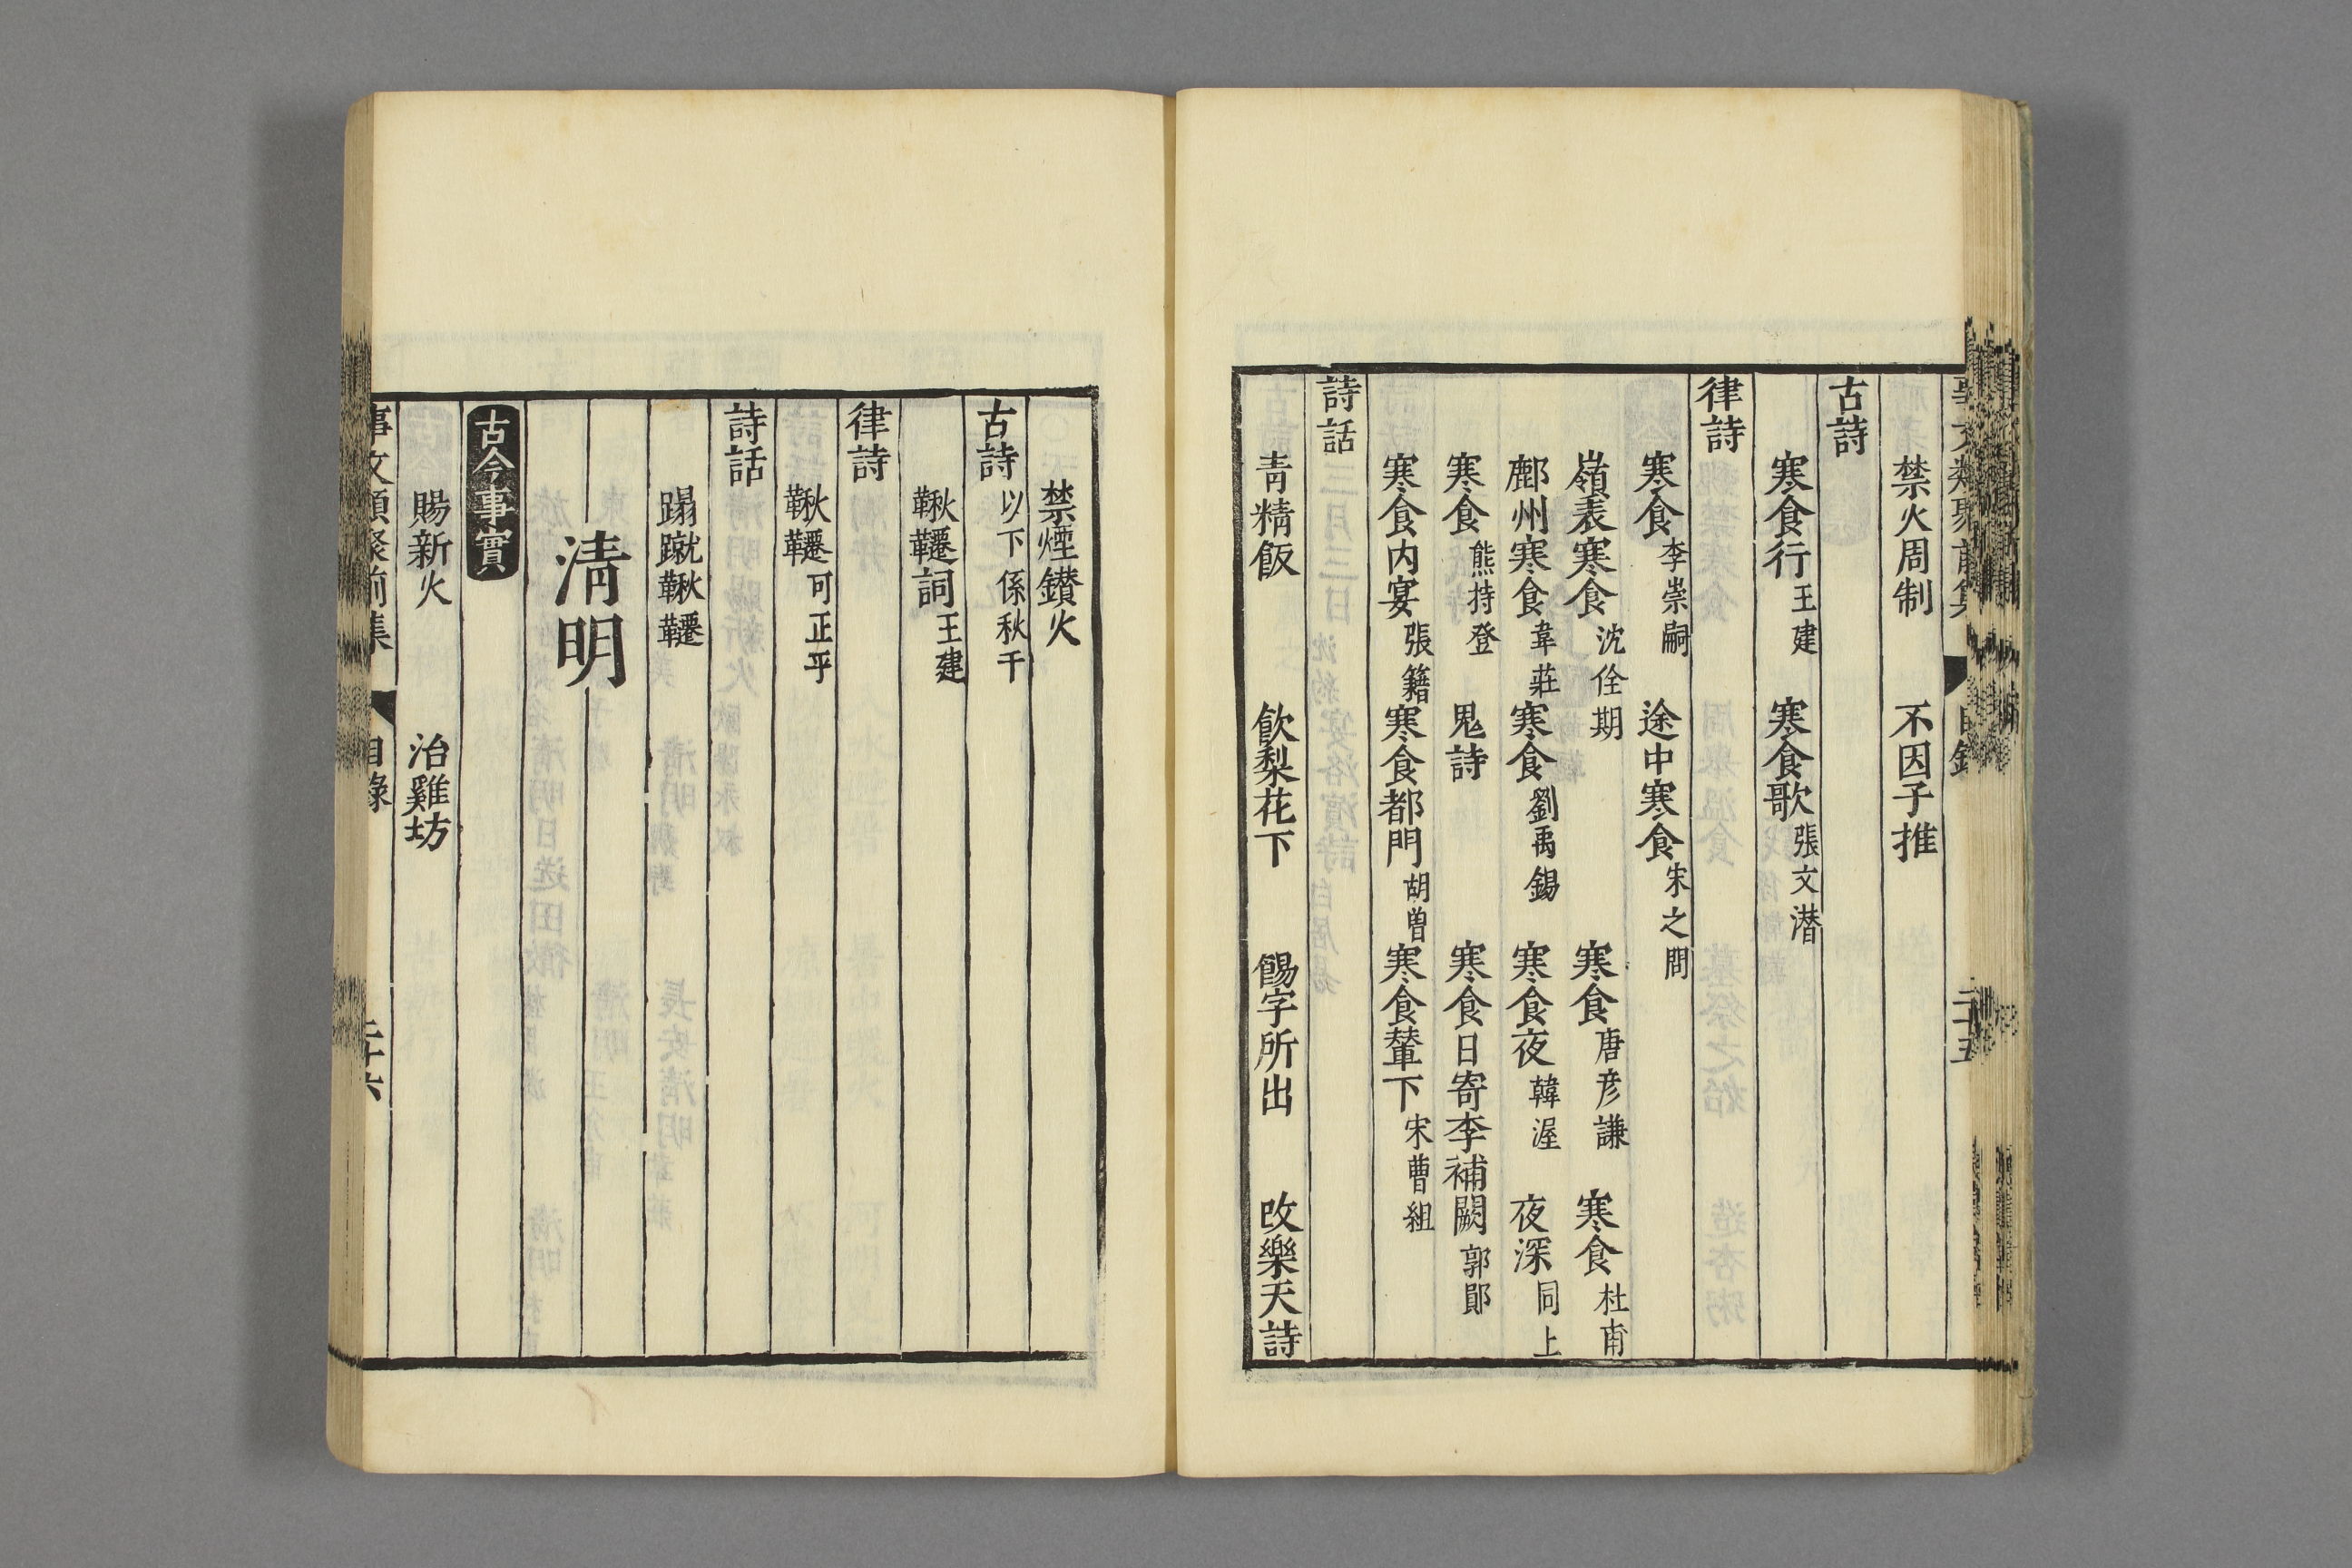 禁火周制 不因子推
古詩
寒食行 王建 寒食歌 張文潛
律詩
寒食 李崇嗣 途中寒食 宋之問
嶺表寒食 沈佺期 寒食 唐彦謙 寒食 杜甫
鄜州寒食 韋莊 寒食 劉禹錫 寒食夜 韓渥 夜深 同上
寒食 熊持登 鬼詩 寒食日寄李補闕 郭鄖
寒食内宴 張籍 寒食都門 胡曾 寒食輦下 宋曹組
詩話
青精飯 飲梨花下 餳字所出 改樂天詩
禁煙鑚火
古詩 以下係秋千
鞦韆詞 王建
律詩
鞦韆 可正平
詩話
蹋蹴鞦韆
清明
古今事實
賜新火 治雞坊
事文類聚前集 目録 二十六